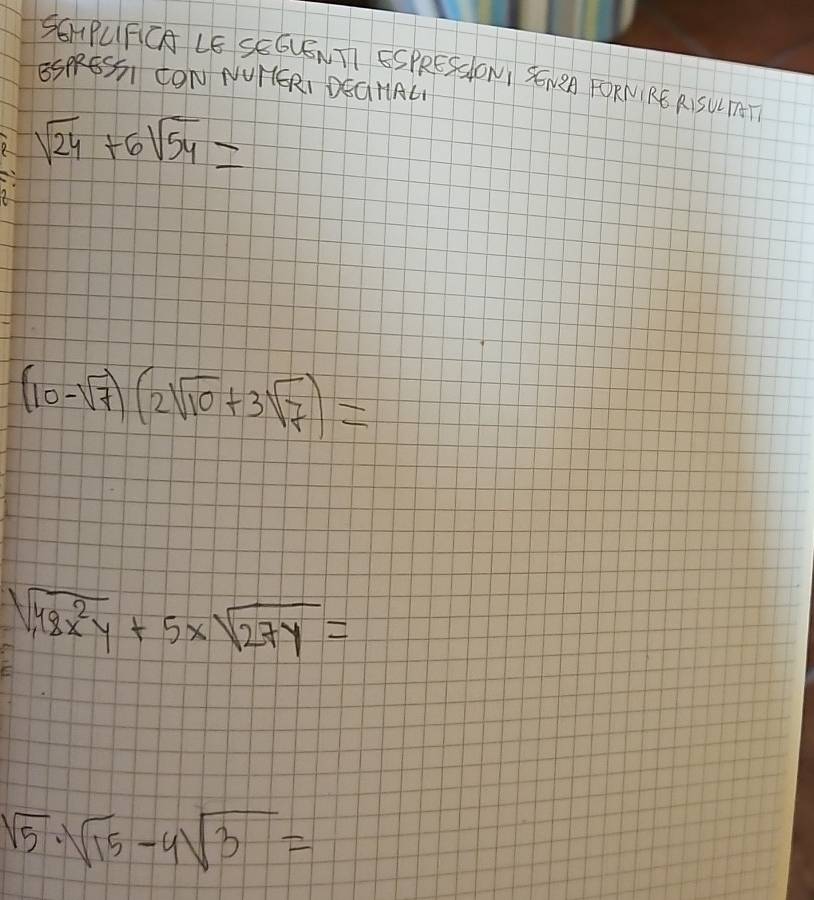 SEMPLIFICA LE SEGUENTI ESPRESSIONI SENZA FORNIRE RISULTATI
ESPRESSI CON NUMERI DECIMALI
√24 + 6√54 =
(10-√7)(2√10 + 3√7) =
√48x²y + 5x√27y =
√5 · √15 - 4√3 =